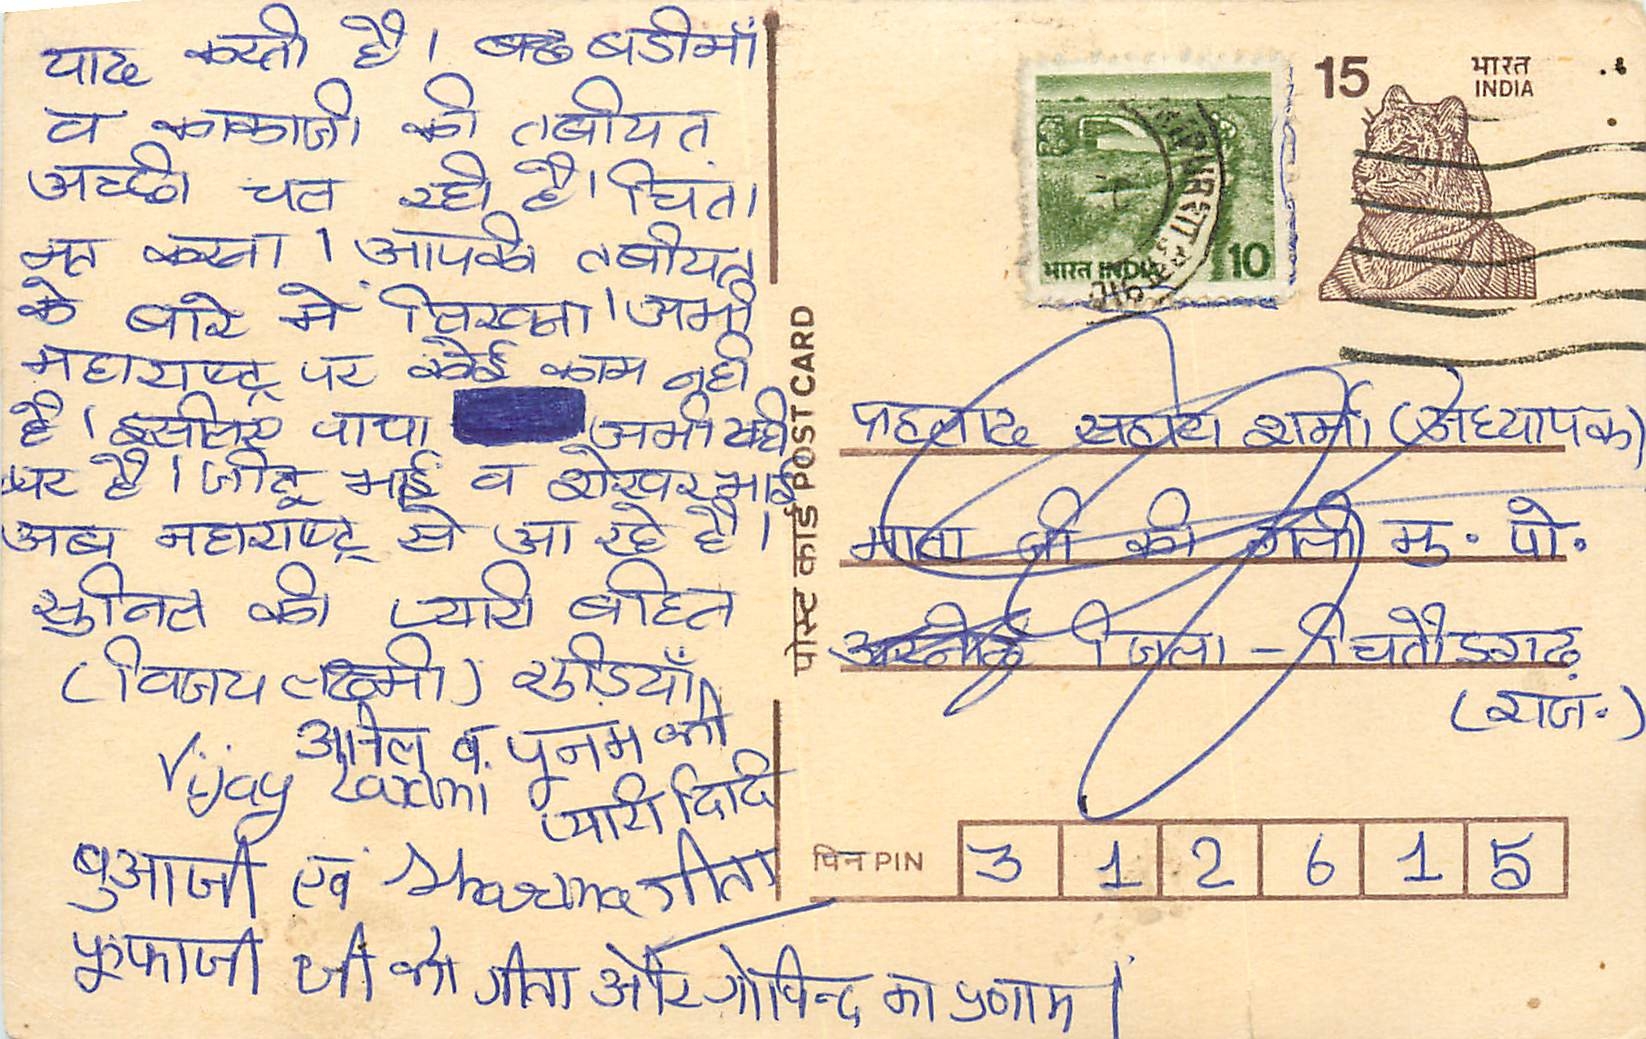 याद करती है। बडीमाँ
व काकाजी की तबीयत
अच्छी चल रही है। चिंता
मत करना। आपकी तबीयत
के बारे मे लिखना। अभी
महाराष्ट्र पर कोई काम नही
है। इसीलिए पापा अभी यही
पर है। जीतू भाई व शेखर भाई
अब महाराष्ट्र से आ रहे है।
सुनिल की प्यारी बहिन
(विजय लक्ष्मी)
अनिल व पूनम की
Vijay Laxmi प्यारी दिदि
बुआजी एवं Sharma गीता
फूंफाजी जी को गीता और गोविन्द का प्रणाम।
पोस्ट कार्ड POST CARD
भारत INDIA 10
15 भारत
INDIA
प्रहलाद सहाय शर्मा (अध्यापक)
माता जी की गली मु. पो.
जिला - चितौडगढ़
(राज.)
पिन PIN 3 1 2 6 1 5